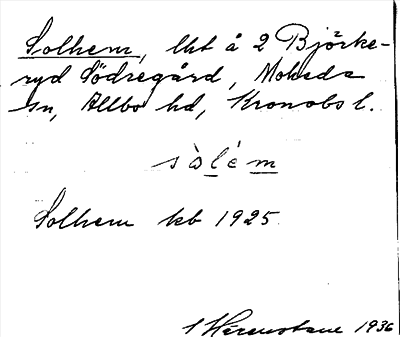 Solhem, lht å 2 Björke-
ryd Södregård, Moheda
sn, Allbo hd, Kronobs l.
sòlém
Solhem kb 1925.
1936